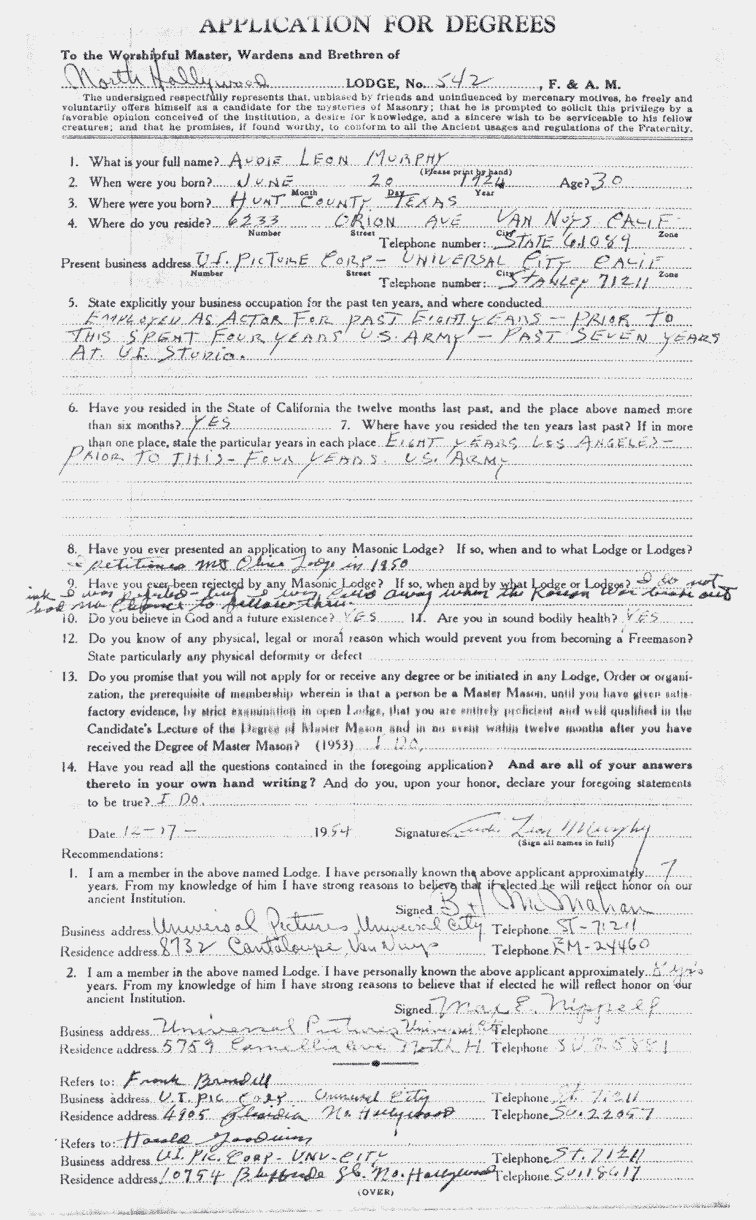 APPLICATION FOR DEGREES
To the Worshipful Master, Wardens and Brethren of
North Hollywood LODGE, No. 542, F. & A. M.
The undersigned respectfully represents that, unbiased by friends and uninfluenced by mercenary motives, he freely and
voluntarily offers himself as a candidate for the mysteries of Masonry; that he is prompted to solicit this privilege by a
favorable opinion conceived of the institution, a desire for knowledge, and a sincere wish to be serviceable to his fellow
creatures; and that he promises, if found worthy, to conform to all the Ancient usages and regulations of the Fraternity.
1. What is your full name? AUDIE LEON MURPHY
(Please print by hand)
2. When were you born? JUNE 20 1924 Age? 30
Month Day Year
3. Where were you born? HUNT COUNTY TEXAS
4. Where do you reside? 6233 ORION AVE VAN NUYS CALIF
Number Street City Zone
Telephone number: STATE 61089
Present business address U.I. PICTURE CORP - UNIVERSAL CITY CALIF
Number Street City Zone
Telephone number: STANLEY 71211
5. State explicitly your business occupation for the past ten years, and where conducted
EMPLOYED AS ACTOR FOR PAST EIGHT YEARS - PRIOR TO
THIS SPENT FOUR YEARS U.S. ARMY - PAST SEVEN YEARS
AT U.I. STUDIO.
6. Have you resided in the State of California the twelve months last past, and the place above named more
than six months? YES 7. Where have you resided the ten years last past? If in more
than one place, state the particular years in each place EIGHT YEARS LOS ANGELES -
PRIOR TO THIS - FOUR YEARS. U.S. ARMY
8. Have you ever presented an application to any Masonic Lodge? If so, when and to what Lodge or Lodges?
petitioned Mt Olive Lodge in 1950
9. Have you ever been rejected by any Masonic Lodge? If so, when and by what Lodge or Lodges? I do not
ink I was rejected - but I was away when the Korean War broke out
had no chance to follow thru.
10. Do you believe in God and a future existence? YES 11. Are you in sound bodily health? YES
12. Do you know of any physical, legal or moral reason which would prevent you from becoming a Freemason?
State particularly any physical deformity or defect
13. Do you promise that you will not apply for or receive any degree or be initiated in any Lodge, Order or organi-
zation, the prerequisite of membership wherein is that a person be a Master Mason, until you have given satis-
factory evidence, by strict examination in open Lodge, that you are entirely proficient and well qualified in the
Candidate's Lecture of the Degree of Master Mason and in no event within twelve months after you have
received the Degree of Master Mason? (1953) I DO.
14. Have you read all the questions contained in the foregoing application? And are all of your answers
thereto in your own hand writing? And do you, upon your honor, declare your foregoing statements
to be true? I DO.
Date 12-17- 1954 Signature Audie Leon Murphy
(Sign all names in full)
Recommendations:
1. I am a member in the above named Lodge. I have personally known the above applicant approximately 7
years. From my knowledge of him I have strong reasons to believe that if elected he will reflect honor on our
ancient Institution.
Signed B H McMahan
Business address Universal Pictures, Universal City Telephone ST-71211
Residence address 8732 Cantaloupe, Van Nuys Telephone EM-24460
2. I am a member in the above named Lodge. I have personally known the above applicant approximately 8 yrs
years. From my knowledge of him I have strong reasons to believe that if elected he will reflect honor on our
ancient Institution.
Signed Max E. Nippell
Business address Universal Pictures Universal City Telephone
Residence address 5759 Camellia Ave North H. Telephone SU 25881
Refers to: Frank Brendell
Business address U.I. PIC. CORP Universal City Telephone St. 71211
Residence address 4905 No. Hollywood Telephone SU. 22057
Refers to: Harold Goodwin
Business address U.I. PIC. CORP - UNV-CITY Telephone ST. 71211
Residence address 10754 Bluffside No. Hollywood Telephone SU 18617
(OVER)